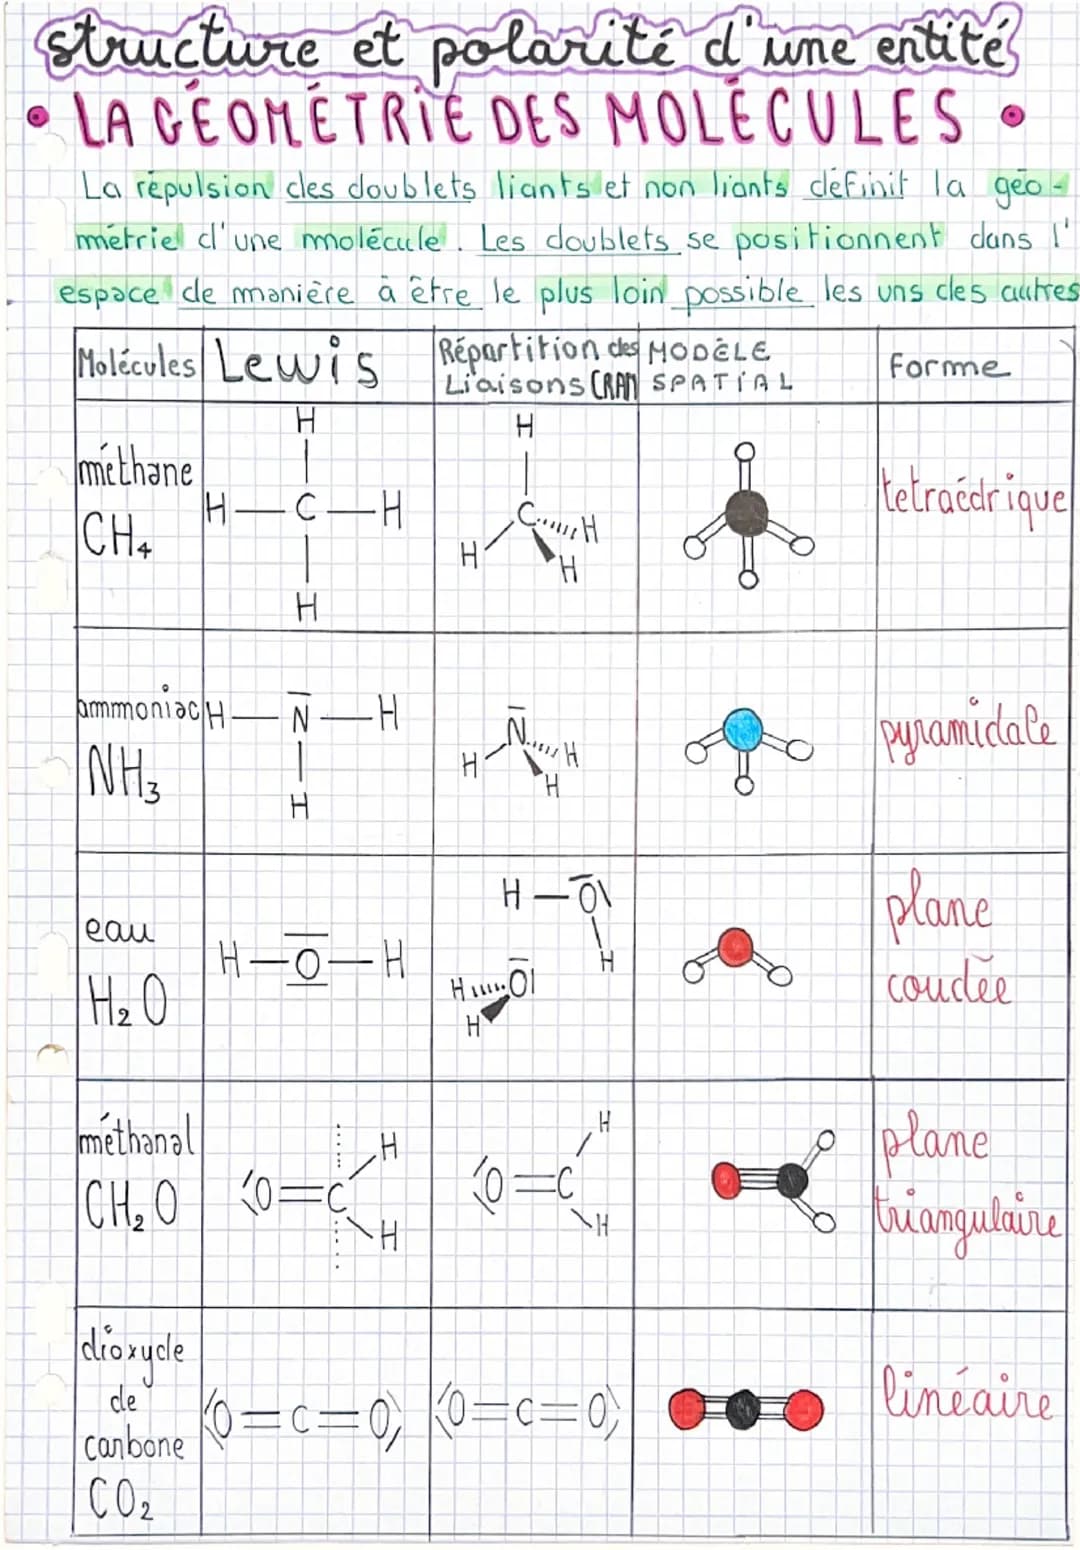 structure et polarité d'une entité
• LA GÉOMÉTRIE DES MOLÉCULES •
La répulsion des doublets liants et non liants définit la géo-
métrie d'une molécule. Les doublets se positionnent dans l'
espace de manière à être le plus loin possible les uns des autres
Molécules
Lewis
Répartition des
Liaisons CRAM
MODÈLE
SPATIAL
Forme
méthane
CH₄
H
H — C — H
H
H
C
H
H
H
tetraédrique
ammoniac
NH₃
H — N — H
H
N
H
H
H
pyramidale
eau
H₂O
H — O — H
H — O
H
H O
H
plane
coudée
méthanal
CH₂O
H
O = C
H
H
O = C
H
plane
triangulaire
dioxyde
de
carbone
CO₂
O = C = O
O = C = O
linéaire